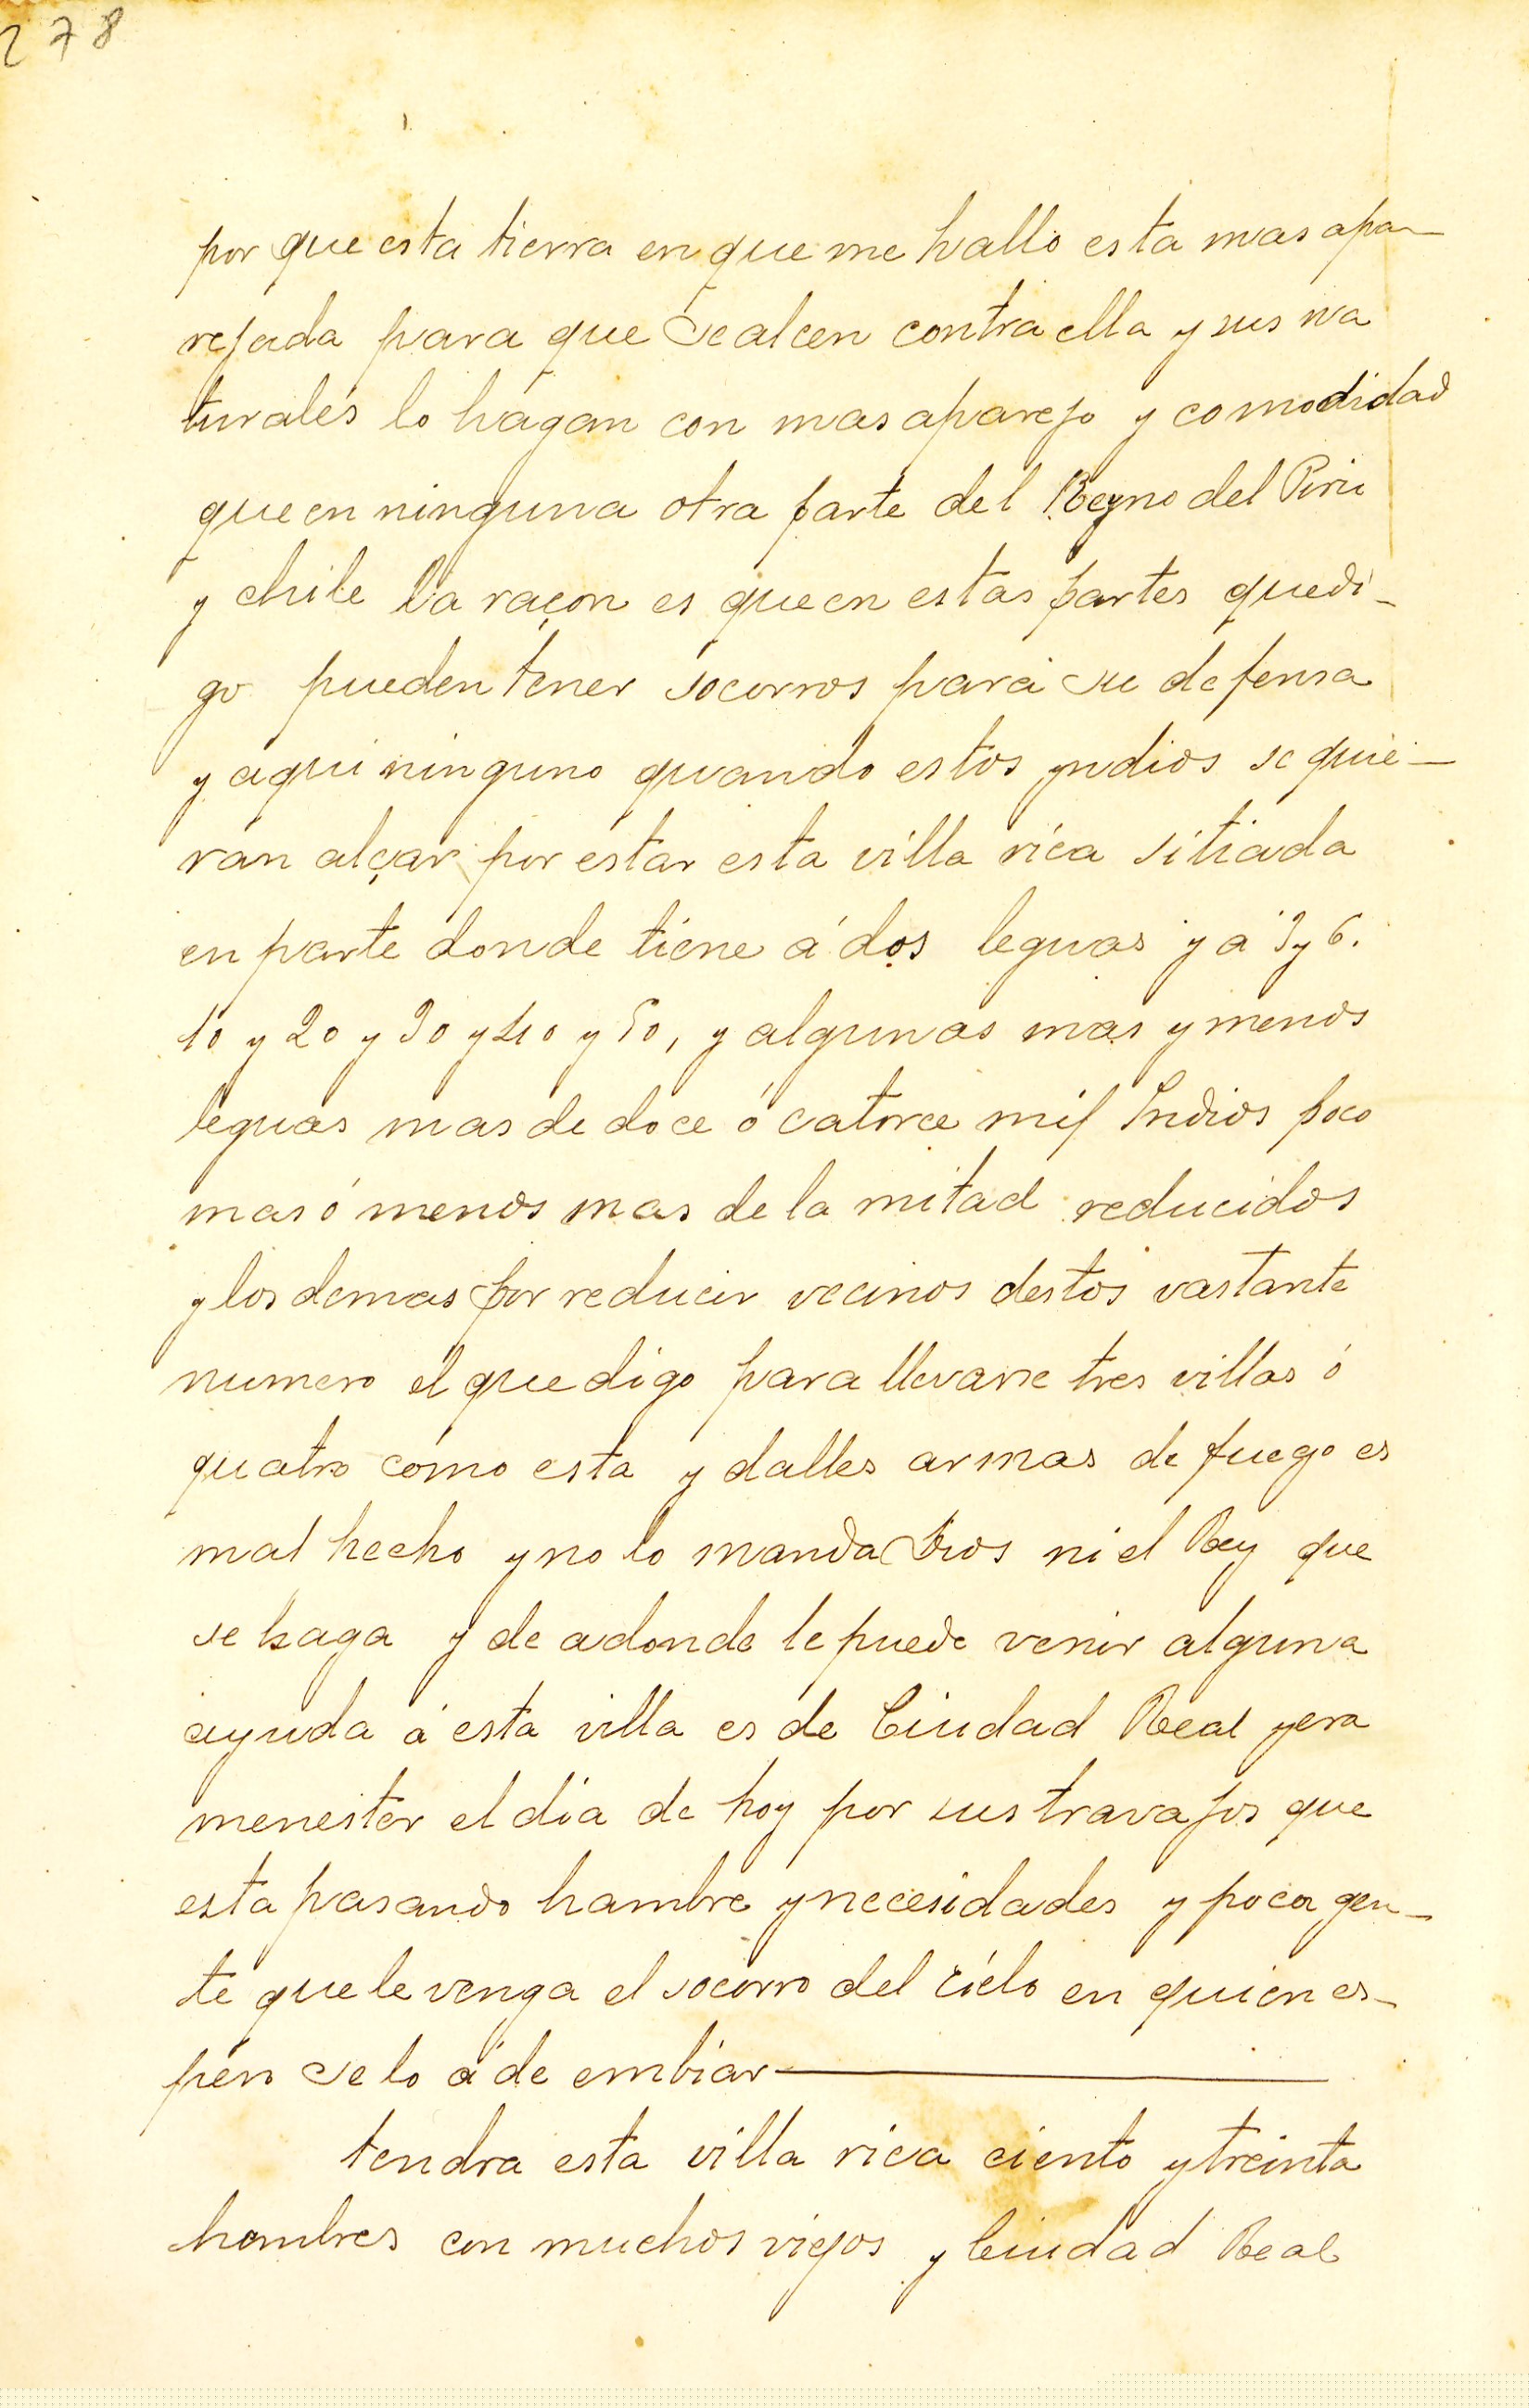 278
por que esta tierra en que me hallo esta mas apa-
rejada para que se alcen contra ella y sus na
turales lo hagan con mas aparejo y comodidad
que en ninguna otra parte del Reyno del Piru
y chile la raçon es que en estas partes que di-
go pueden tener socorros para su defensa
y aqui ninguno quando estos yndios se quie-
ran alçar por estar esta villa rica sitiada
en parte donde tiene á dos leguas y a 3 y 6.
10 y 20 y 30 y 40 y 50, y algunas mas y menos
leguas mas de doce ó catorce mil Indios poco
mas ó menos mas de la mitad reducidos
y los demas por reducir vecinos destos vastante
numero el que digo para llevarse tres villas ó
quatro como esta y dalles armas de fuego es
mal hecho y no lo manda Dios ni el Rey que
se haga y de adonde le puede venir alguna
ayuda á esta villa es de Ciudad Real y era
menester el dia de hoy por sus travajos que
esta pasando hambre y necesidades y poca gen-
te que le venga el socorro del cielo en quien es-
pero se lo á de embiar
tendra esta villa rica ciento y treinta
hombres con muchos viejos y Ciudad Real